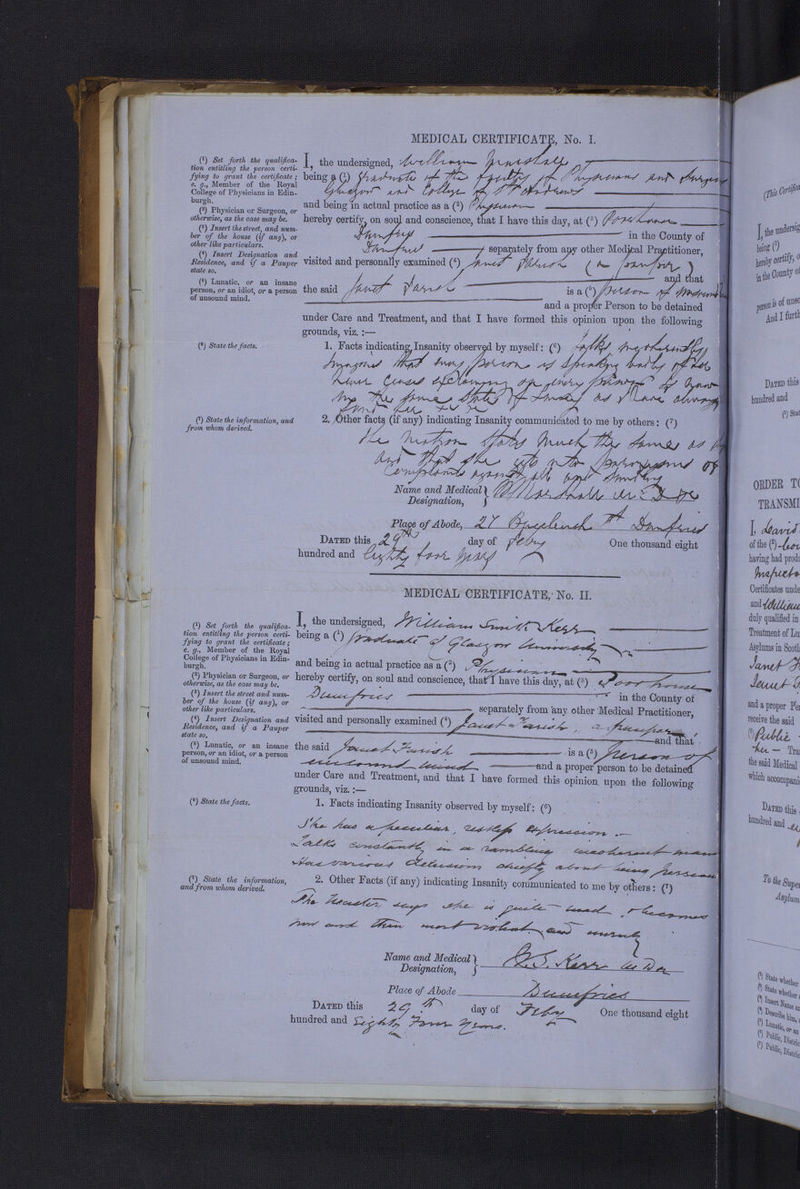 MEDICAL CERTIFICATE, No. I.
(¹) Set forth the qualifica-
tion entitling the person certi-
fying to grant the certificate;
e. g., Member of the Royal
College of Physicians in Edin-
burgh.
(²) Physician or Surgeon, or
otherwise, as the case may be.
(³) Insert the street, and num-
ber of the house (if any), or
other like particulars.
(⁴) Insert Designation and
Residence, and if a Pauper
state so.
(⁵) Lunatic, or an insane
person, or an idiot, or a person
of unsound mind.
(⁶) State the facts.
(⁷) State the information, and
from whom derived.
I, the undersigned, William Marshall
being a (¹) Graduate of the Faculty of Physicians and Surgeons
Glasgow and College of St Andrews
and being in actual practice as a (²) Physician
hereby certify, on soul and conscience, that I have this day, at (³) Poorhouse
Dumfries in the County of
Dumfries separately from any other Medical Practitioner,
visited and personally examined (⁴) Janet Parish (a pauper)
and that
the said Janet Parish is a (⁵) person of unsound
and a proper Person to be detained
under Care and Treatment, and that I have formed this opinion upon the following
grounds, viz. :—
1. Facts indicating Insanity observed by myself: (⁶) talks incoherently
Imagines that every person is speaking badly of her
never ceases
the same state of as I have always
2. Other facts (if any) indicating Insanity communicated to me by others: (⁷)
The Matron states much the same as
and that she gets into paroxysms of
complaints against all and
Name and Medical Designation, W Marshall
Place of Abode, 27 Buccleuch St Dumfries
DATED this 29th day of Feby One thousand eight
hundred and Eighty four years
MEDICAL CERTIFICATE, No. II.
(¹) Set forth the qualifica-
tion entitling the person certi-
fying to grant the certificate;
e. g., Member of the Royal
College of Physicians in Edin-
burgh.
(²) Physician or Surgeon, or
otherwise, as the case may be.
(³) Insert the street and num-
ber of the house (if any), or
other like particulars.
(⁴) Insert Designation and
Residence, and if a Pauper
state so.
(⁵) Lunatic, or an insane
person, or an idiot, or a person
of unsound mind.
(⁶) State the facts.
(⁷) State the information,
and from whom derived.
I, the undersigned, William Smith Kerr
being a (¹) Graduate of Glasgow University
and being in actual practice as a (²) Physician
hereby certify, on soul and conscience, that I have this day, at (³) Poor house
Dumfries in the County of
separately from any other Medical Practitioner,
visited and personally examined (⁴) Janet Parish, a pauper,
and that
the said Janet Parish is a (⁵) person of
unsound mind and a proper person to be detained
under Care and Treatment, and that I have formed this opinion upon the following
grounds, viz. :—
1. Facts indicating Insanity observed by myself: (⁶)
She has a peculiar, restless expression.—
Talks constantly in a rambling incoherent
Has various delusions chiefly about being
2. Other Facts (if any) indicating Insanity communicated to me by others: (⁷)
The Master says she is quite mad, & becomes
now and then most violent and unruly
Name and Medical Designation, W. S. Kerr
Place of Abode Dumfries
DATED this 29th day of Feby One thousand eight
hundred and Eighty Four years.
I, the undersig
being (¹)
hereby certify, o
in the County of
person is of unso
And I furth
DATED this
hundred and
ORDER TO
TRANSMI
I, David
of the (²)
having had prod
Inspecto
Certificates unde
and William
duly qualified in
Treatment of Lu
Asylums in Scotl
Janet
and a proper Per
receive the said
Public
her — Tra
the said Medical
which accompani
DATED this
hundred and
To the Super
Asylum